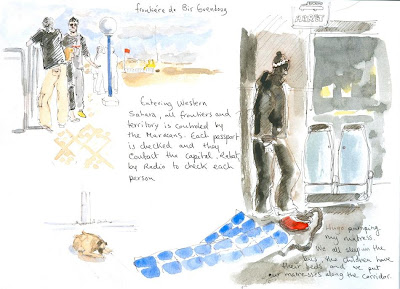 frontière de Bir Guendouz
ARRET
Entering Western
Sahara, all frontiers and
territory is controled by
the Marocans. Each passport
is checked and they
contact the capital, Rabat,
by Radio to check each
person.
Hugo pumping
my matress.
We all sleep in the
bus, the children have
their beds and we put
our matresses along the corridor.